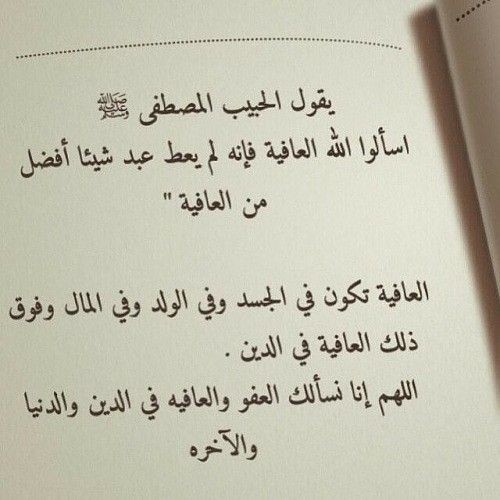 يقول الحبيب المصطفى ﷺ
اسألوا الله العافية فإنه لم يعط عبد شيئا أفضل
من العافية "
العافية تكون في الجسد وفي الولد وفي المال وفوق
ذلك العافية في الدين .
اللهم إنا نسألك العفو والعافيه في الدين والدنيا
والآخره